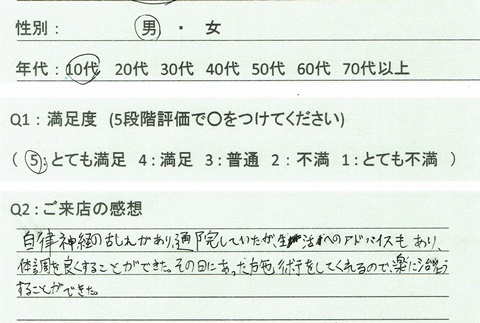 性別： 男 ・ 女
年代： 10代 20代 30代 40代 50代 60代 70代以上
Q1：満足度 (5段階評価で〇をつけてください)
( 5：とても満足 4：満足 3：普通 2：不満 1：とても不満 )
Q2：ご来店の感想
自律神経の乱れがあり、通院していたが、生活へのアドバイスもあり、
体調を良くすることができた。その日にあった施術をしてくれるので、楽に治療
することができた。